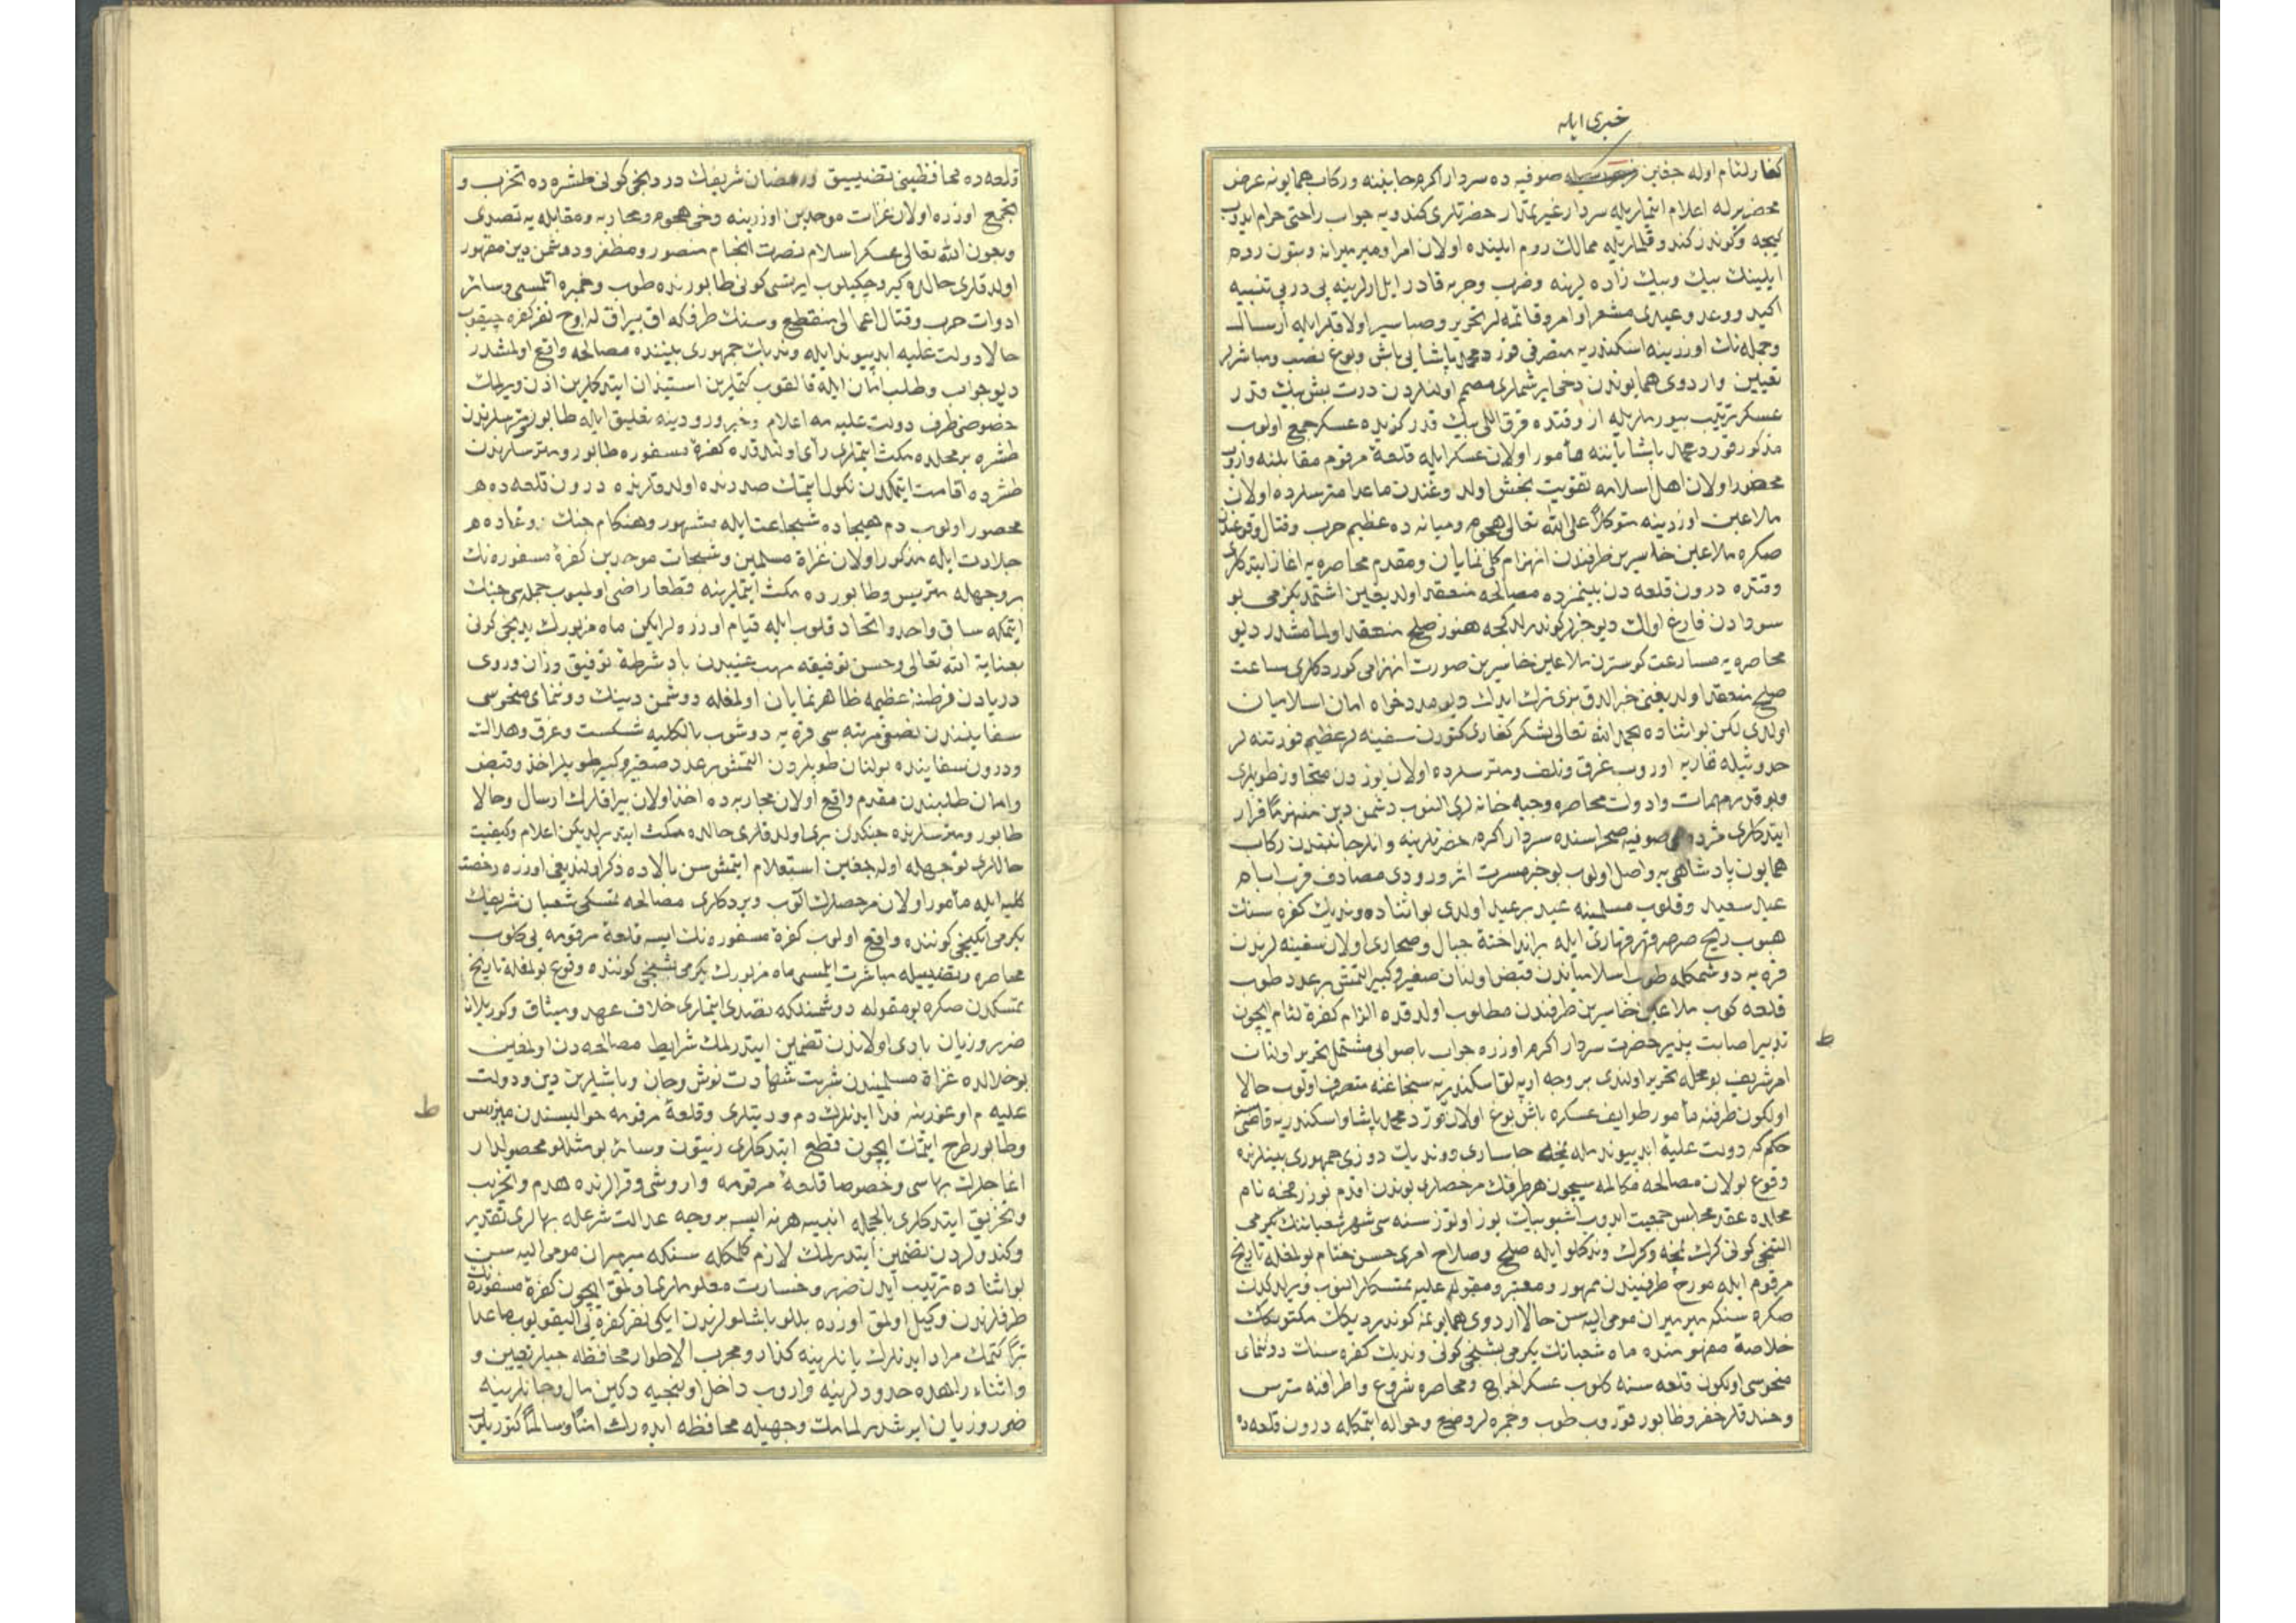 خبری ایله
کفار لئام اوله جغین صوفیه ده سردار اکرم جانبنه و رکاب همایونه عرض
محضر برله اعلام ایتملریله سردار غیرتمدار حضرتلری کندویه جواب راحتی حرام ایدوب
کیجه و کوندز کندو قلملریله ممالک روم ایلینده اولان امرا و میر میرانه و بتون روم
ایلینک بیك و بیك زاده لرینه و ضرب و حربه قادر ایل ارلرینه پی در پی تنبیه
اکید و وعد و عیدی مشعر اوامر و قائمه لر تحریر و صبا سیر اولاقلر ایله ارسال
و جمله نك اوزرینه اسکندریه متصرفی قورد محمد پاشایی باش و بوغ نصب و مباشرلر
تعیین و اردوی همایوندن دخی ایرشملری مصمم اولنلردن درت بش بیك قدر
عسکر ترتیب بیورملریله از وقتده قرق اللی بیك قدر کزیده عسکر جمع اولوب
مذکور قورد محمد پاشا یاننه مأمور اولان عسکر ایله قلعهٔ مرقوم مقابلنه واروب
محصور اولان اهل اسلامه تقویت بخش اولدوغندن ماعدا مترسلرده اولان
ملاعین اوزرینه متوکلا علی الله تعالی هجوم و میانه ده عظیم حرب و قتال وقوعندن
صکره ملاعین خاسرین طرفندن انهزام کلی نمایان و مقدم محاصره یه اغاز ایتدکلری
وقتده درون قلعه دن بینمزده مصالحه منعقد اولدیغین اشتمدیکزمی بو
سودادن فارغ اولك دیو خبر کوندرلدکجه هنوز صلح منعقد اولمامشدر دیو
محاصره یه مسارعت کوسترن ملاعین خاسرین صورت انهزامی کوردکلری ساعت
صلح منعقد اولدیغنی خبر الدق بزی ترك ایدك دیو مددخواه امان اسلامیان
اولدی لکن بو اثناده بحمد الله تعالی لشکر کفاری کتورن سفینه لر عظیم فورتنه لر
حدوثیله قاریه اوروب غرق و تلف و مترسلرده اولان یوزدن متجاوز طوپلری
و بو قدر مهمات و ادوات محاصره و جبه خانه لری النوب دشمن دین منهزما فرار
ایتدکلری مژده سی صوفیه صحراسنده سردار اکرم حضرتلرینه و انلر جانبندن رکاب
همایون پادشاهی یه واصل اولوب بو خبر مسرت اثر ورودی مصادف قرب ایام
عید سعید و قلوب مسلمینه عید بر عید اولدی بو اثناده وندیك کفره سنك
هبوب ریح صرصر قهر قهاری ایله برانداختهٔ جبال و صحاری اولان سفینه لرندن
قره یه دوشمکله طوب اسلامیاندن قبض اولنان صغیر و کبیر التمش بر عدد طوب
قلعه کوب ملاعین خاسرین طرفندن مطلوب اولدقده الزام کفرهٔ لئام ایچون
تدبیر اصابت پذیر حضرت سردار اکرم اوزره جواب باصوابی مشتمل تحریر اولنان
امر شریف بو محله تحریر اولندی بر وجه ارپه لق اسکندریه سنجاغنه متصرف اولوب حالا
اولکون طرفنه مأمور طوایف عسکره باش بوغ اولان قورد محمد پاشا و اسکندریه قاضیسنه
حکم که دولت علیهٔ ابد پیوندمله نمچه چاساری و وندیك دوزی جمهوری بینلرنده
وقوع بولان مصالحه مکالمه سیچون هر طرفك مرخصلری بوندن اقدم
محلده عقد مجلس جمعیت ایدوب اشبو بیك یوز اوتوز سنه سی شهر شعباننك یکرمی
التنجی کونی کرك نمچه و کرك وندیکلو ایله صلح و صلاح امری حسن ختام بولمغله تاریخ
مرقوم ایله مورخ طرفیندن ممهور و معتبر و مقبول علیه تمسکلر النوب ویرلدکدن
صکره سنکه میر میران مومی الیه سن حالا اردوی همایونمه کوندردیکك مکتوبکك
خلاصهٔ مفهومنده ماه شعبانك یکرمی بشنجی کونی وندیك کفره سنك دوننمای
منحوسی اولکون قلعه سنه کلوب عسکر اخراج و محاصره شروع و اطرافنه مترس
و خندقلر حفر و طابور قوروب طوب و خمبره لر وضع و حواله ایتمکله درون قلعه ده
ط
قلعه ده محافظینی تضییق و رمضان شریفك دردنجی کونی طشره ده تحزب و
تجمع اوزره اولان غزات موحدین اوزرینه دخی هجوم و محاربه و مقابله یه تصدی
و بعون الله تعالی عسکر اسلام نصرت انجام منصور و مظفر و دوشمن دین مقهور
اولدقلری حالده کیرو چکیلوب ایرتسی کونی طابورنده طوب و خمبره اتلمسی و سائر
ادوات حرب و قتال اعمالی منقطع و سنك طرفکه اق بیراق له اوچ نفر کفره چیقوب
حالا دولت علیه ابد پیوند ایله وندیك جمهوری بیننده مصالحه واقع اولمشدر
دیو جواب و طلب امان ایله قالقوب کتملرین استیذان ایتدکلرین اذن ویرلمك
خصوصی طرف دولت علیه مه اعلام و خبر ورودینه تعلیق ایله طابور و مترسلرندن
طشره بر محلده مکث ایتملری رأی اولندقده کفرهٔ مسفوره طابور و مترسلرندن
طشرده اقامت ایتمکدن نکول ایتمك صددنده اولدقلرنده درون قلعه ده هم
محصور اولوب دم هیجاده شجاعت ایله مشهور و هنکام جنك و وغاده هم
جلادت ایله مذکور اولان غزاة مسلمین و شجعات موحدین کفرهٔ مسفوره نك
بر وجهله متریس و طابورده مکث ایتملرینه قطعا راضی اولمیوب جمله سی جنك
ایتمکه ساق واحد و اتحاد قلوب ایله قیام اوزره لر ایکن ماه مزبورك یدنجی کونی
بعنایة الله تعالی و حسن توفیقه مهب غیبیدن باد شرطهٔ توفیق وزان و روی
دریادن فرطنهٔ عظیمه ظاهر نمایان اولمغله دوشمن دینك دوننمای منحوسی
سفاینندن نصفی مرتبه سی قره یه دوشوب بالکلیه شکست و غرق و هدالت
و درون سفاینده بولنان طوپلردن التمش بر عدد صغیر و کبیر طوپلر اخذ و قبض
و امان طلبندن مقدم واقع اولان محاربه ده اخذ اولان بیراقلرك ارسال و حالا
طابور و مترسلرنده جنکدن بری اولدقلری حالده مکث ایتدیرلدیکن اعلام و کیفیت
حاللری نوجهله اوله جغین استعلام ایتمش سن بالاده ذکر اولندیغی اوزره رخصت
کلیه ایله مأمور اولان مرخصلرك الوب ویردکلری مصالحه تمسکی شعبان شریفك
یکرمی ایکنجی کوننده واقع اولوب کفرهٔ مسفوره نك ایسه قلعهٔ مرقومه یی کلوب
محاصره و تضییقه مباشرت ایلمسی ماه مزبورك یکرمی بشنجی کوننده وقوع بولمغله تاریخ
تمسکدن صکره بو مقوله دوشمنلکه تصدی ایتملری خلاف عهد و میثاق و کوریلان
ضرر و زیان بادی اولاندن تضمین ایتدرلمك شرایط مصالحه دن اولمغین
بو خلالده غزاة مسلمیندن شربت شهادت نوش و جان و باشلرین دین و دولت
علیه م اوغورینه فدا ایدنلرك دم و دیتلری و قلعهٔ مرقومه حوالیسندن متریس
و طابور طرح ایتمك ایچون قطع ایتدکلری زیتون و سائر بو مثللو محصولدار
اغاجلرك بهاسی و خصوصا قلعهٔ مرقومه واروشی و قرالرنده هدم و تخریب
و تحریق ایتدکلری بالجمله ابنیه هر نه ایسه بر وجه عدالت شرعله بهالری تقدیر
و کندولردن تضمین ایتدرلمك لازم کلمکله سنکه میر میران مومی الیه سن
بو اثناده ترتیب ایدن ضرر و خسارت معلوملری اولمق ایچون کفرهٔ مسفوره نك
طرفلرندن وکیل اولمق اوزره بللو باشلولرندن ایکی نفر کفره یی الیقویوب ماعدا
برا کتمك مراد ایدنلرك یانلرینه کذار و مجرب الاطوار محافظه جیلر تعیین و
و اثناء راهده حدودلرینه واروب داخل اولنجیه دکین مال و جانلرینه
ضرر و زیان ایرشدرلمامك وجهیله محافظه ایدەرك امنا و سالما کتوریلوب
ط